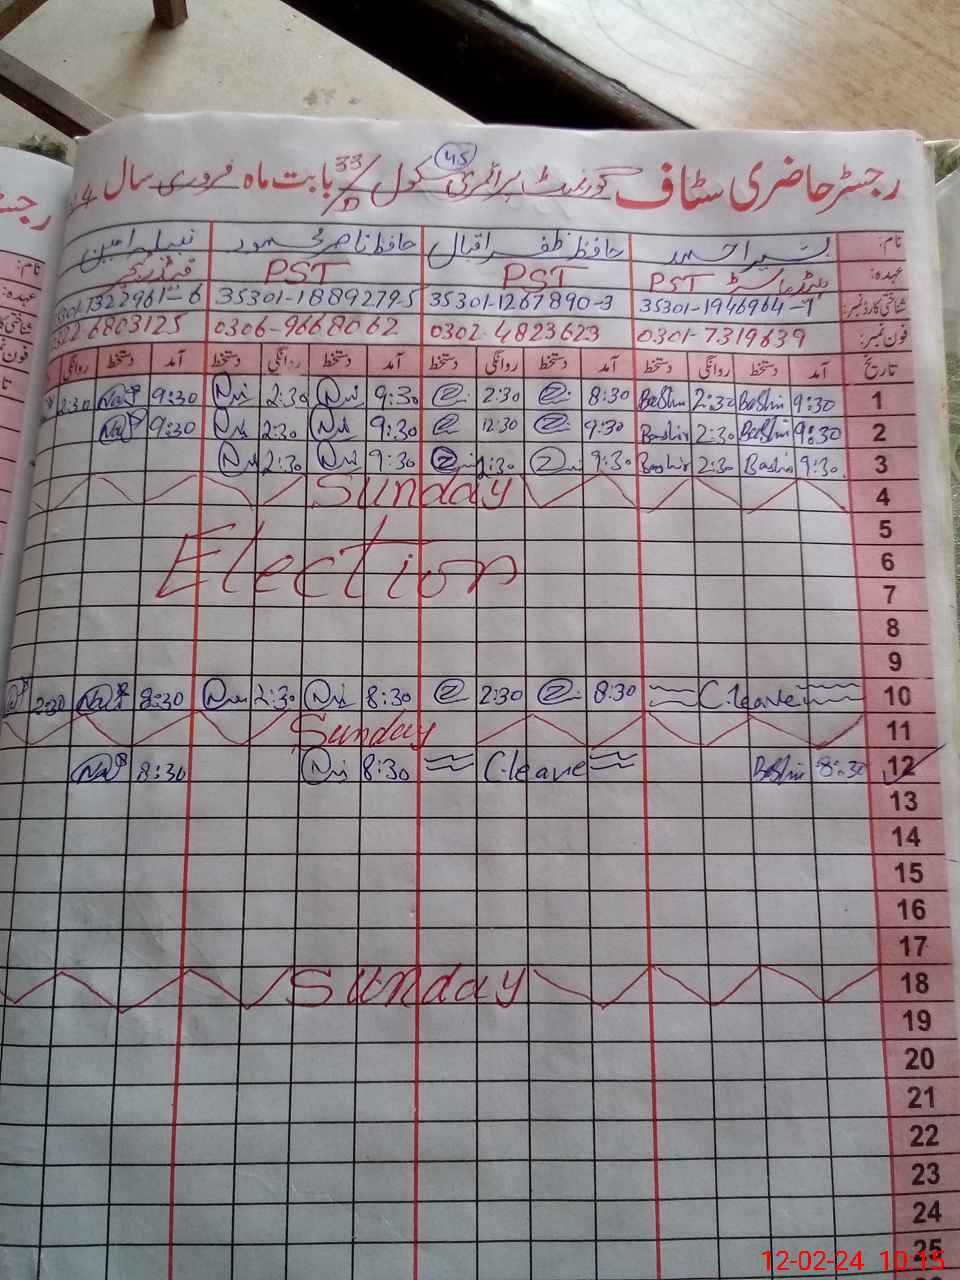 رجسٹر حاضری سٹاف گورنمنٹ پرائمری سکول 33/D بابت ماہ فروری سال
45
نام: بشیر احمد حافظ ظفر اقبال حافظ ناصر محمود نبیلہ امین
عہدہ: ہیڈ ماسٹر PST PST PST
شناختی کارڈ نمبر: 35301-1946964-1 35301-1267890-3 35301-1889279-5
فون نمبر: 0301-7319639 0302-4823623 0306-9668062 6803125
تاریخ آمد دستخط روانگی دستخط آمد دستخط روانگی دستخط آمد دستخط روانگی دستخط آمد دستخط روانگی
1 9:30 Bashir 2:30 Bashir 8:30 2:30 9:30 2:30 9:30 2:30
2 9:30 Bashir 2:30 Bashir 9:30 12:30 9:30 2:30 9:30
3 9:30 Bashir 2:30 Bashir 9:30 2:30 9:30 2:30
4 Sunday
5
Election
6
7
8
9
10 C.leave 8:30 2:30 8:30 2:30 8:30 2:30
11 Sunday
12 8:30 Bashir C.leave 8:30 8:30
13
14
15
16
17
18 Sunday
19
20
21
22
23
24
25
12-02-24 10:15